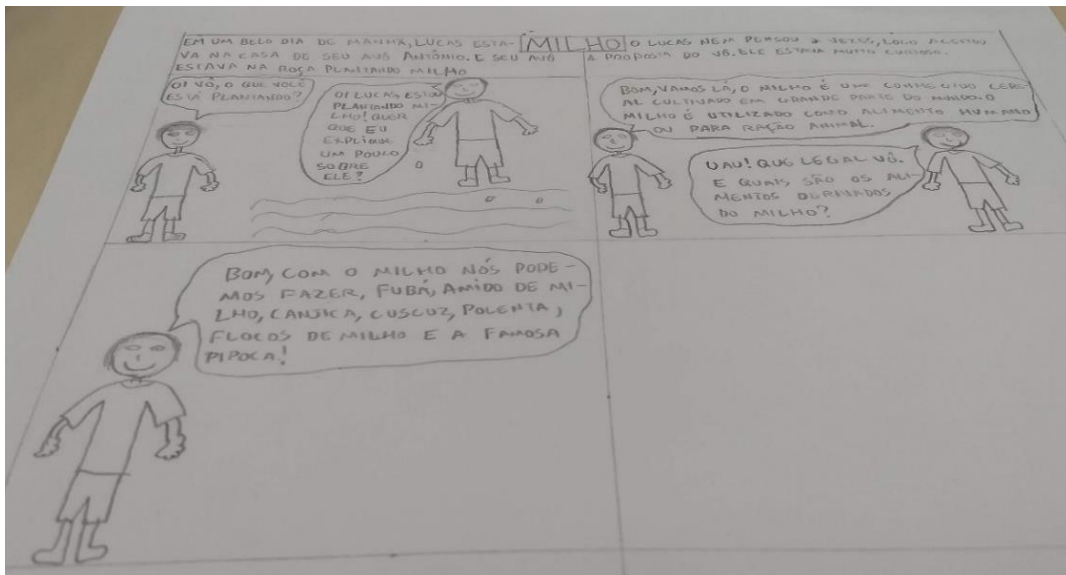 MILHO
EM UM BELO DIA DE MANHÃ, LUCAS ESTA-
VA NA CASA DE SEU AVÔ ANTÔNIO. E SEU AVÔ
ESTAVA NA ROÇA PLANTANDO MILHO
OI VÔ, O QUE VOCÊ
ESTÁ PLANTANDO?
OI LUCAS, ESTOU
PLANTANDO MI-
LHO! QUER
QUE EU
EXPLIQUE
UM POUCO
SOBRE
ELE?
O LUCAS NEM PENSOU 2 VEZES, LOGO ACEITOU
A PROPOSTA DO VÔ. ELE ESTAVA MUITO CURIOSO.
BOM, VAMOS LÁ, O MILHO É UM CONHECIDO CERE-
AL CULTIVADO EM GRANDE PARTE DO MUNDO. O
MILHO É UTILIZADO COMO ALIMENTO HUMANO
OU PARA RAÇÃO ANIMAL.
UAU! QUE LEGAL VÔ.
E QUAIS SÃO OS ALI-
MENTOS DERIVADOS
DO MILHO?
BOM, COM O MILHO NÓS PODE-
MOS FAZER, FUBÁ, AMIDO DE MI-
LHO, CANJICA, CUSCUZ, POLENTA,
FLOCOS DE MILHO E A FAMOSA
PIPOCA!